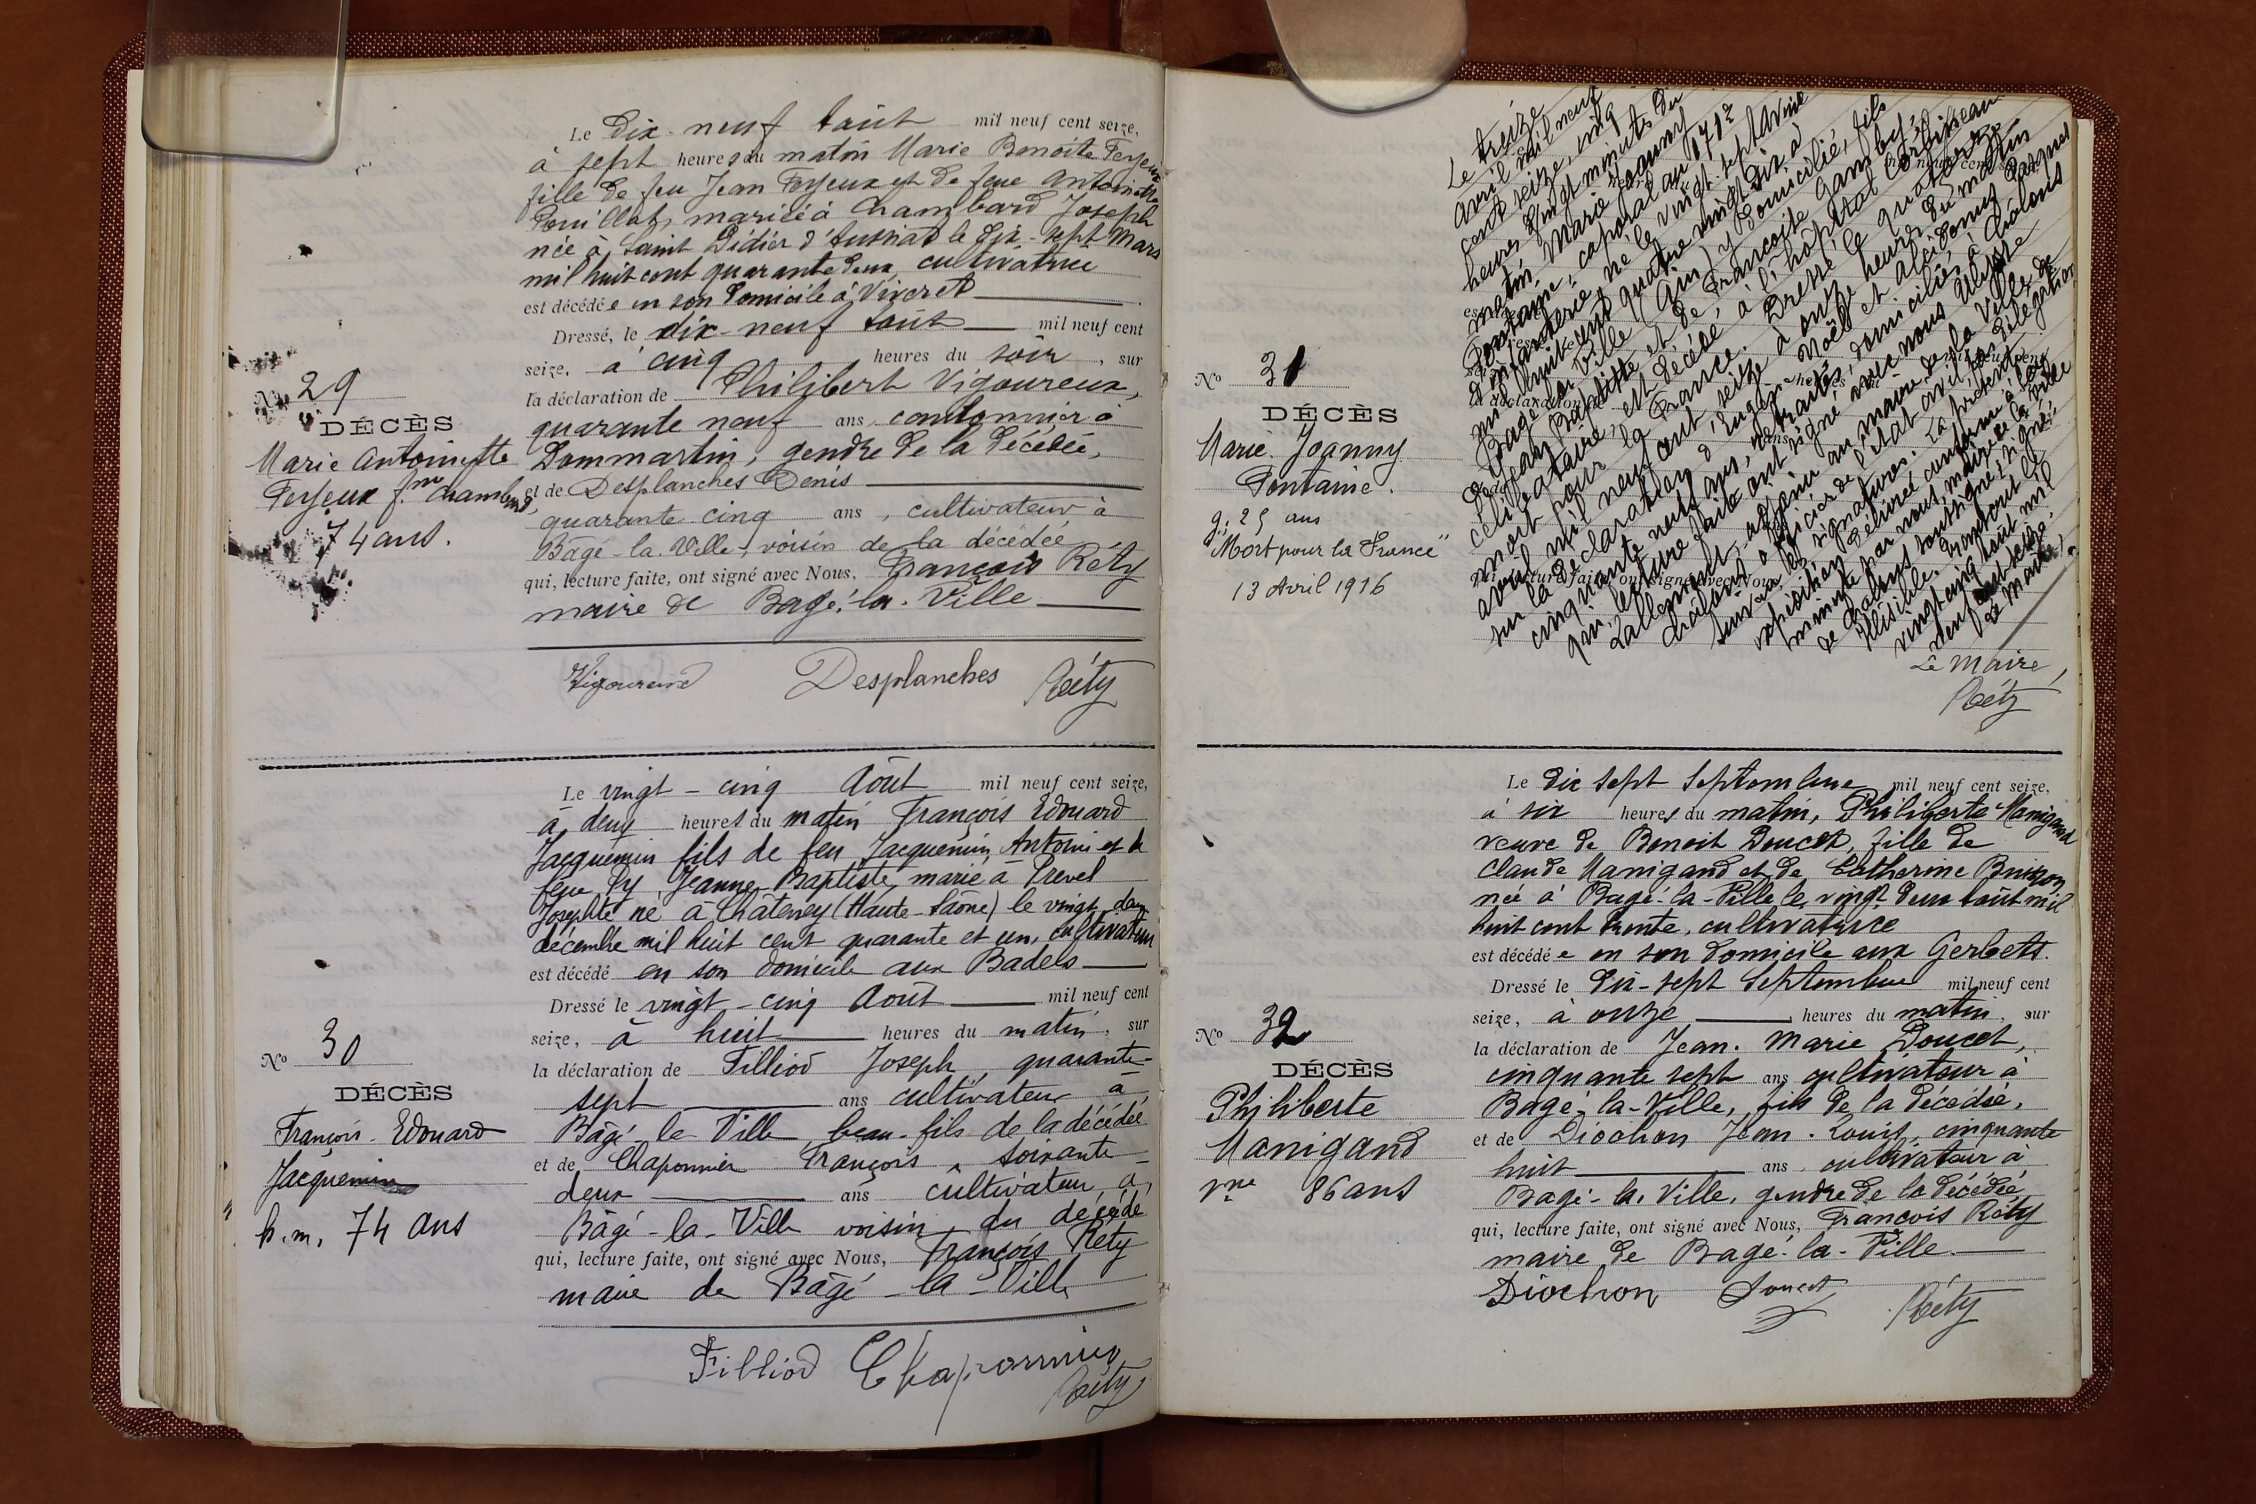 Le dix-neuf août mil neuf cent seize,
à sept heures du matin Marie Benoite Feyeux
fille de feu Jean Feyeux et de feue Antoinette
Pouillat, mariée à Chambard Joseph
née à Saint Didier d'Aussiat le dix-sept Mars
mil huit cent quarante deux, cultivatrice
est décédée en son domicile à Viveret
Dressé, le dix-neuf août mil neuf cent
seize, à cinq heures du soir, sur
la déclaration de Philibert Vigoureux,
quarante neuf ans, cantonnier à
Dommartin, gendre de la décédée,
et de Desplanches Denis
quarante cinq ans, cultivateur à
Bâgé-la-Ville, voisin de la décédée
qui, lecture faite, ont signé avec Nous, François Réty
maire de Bagé-la-Ville
Vigoureux Desplanches Réty
No 29
DÉCÈS
Marie Antoinette
Feyeux fme Chambard,
74 ans.
Le vingt-cinq Août mil neuf cent seize,
à deux heures du matin François Edouard
Jacquemin fils de feu Jacquemin Antoine et de
feue Jeanne Baptiste, marié à Prevel
Josephte né à Châteney (Haute-Saône) le vingt deux
décembre mil huit cent quarante et un, cultivateur
est décédé en son domicile aux Badels
Dressé le vingt-cinq Août mil neuf cent
seize, à huit heures du matin, sur
la déclaration de Filliod Joseph, quarante-
sept ans cultivateur à
Bâgé-la-Ville, beau-fils de la décédée
et de Chaponnier François, soixante-
deux ans cultivateur à
Bâgé-la-Ville voisin du décédé
qui, lecture faite, ont signé avec Nous, François Réty
maire de Bâgé-la-Ville
Filliod Chaponnier
Réty
No 30
DÉCÈS
François-Edouard
Jacquemin
h.m. 74 ans
Le treize
avril mil neuf
cent seize, cinq
heures vingt minutes du
matin Marie Joanny
Fontaine, caporal au 171e
d'infanterie, né le vingt-sept Avril
mil huit cent quatre vingt dix à
Bagé la Ville (Ain) y domicilié, fils
de Jean Baptiste et de Françoise Gambet,
célibataire, est décédé à l'hôpital Corbisseau
mort pour la France. Dressé le quatorze
avril mil neuf cent seize à onze heures du matin
sur la déclaration d'Eugène Noël et Alcidonus Pasques
cinquante neuf ans, retraités, domiciliés à Châlons
qui, lecture faite ont signé avec nous Ulysse
Lallemont, adjoint au maire de la Ville de
Châlons, officier de l'état civil par délégation
Suivent les signatures. La présente
expédition délivrée conforme à la
minute par nous, maire de la ville
de Châlons soussigné. Signé:
illisible. Transcrit le
vingt cinq août mil
neuf cent seize.
Le Maire,
Le Maire,
Réty
No 31
DÉCÈS
Marie-Joanny
Fontaine.
g. 25 ans
"Mort pour la France"
13 Avril 1916
Le dix sept Septembre mil neuf cent seize,
à six heures du matin, Philiberte Manigand
veuve de Benoit Doucet, fille de
Claude Manigand et de Catherine Buisson
née à Bagé-la-Ville le vingt deux août mil
huit cent trente, cultivatrice
est décédée en son domicile aux Gerbets.
Dressé le dix-sept Septembre mil neuf cent
seize, à onze heures du matin, sur
la déclaration de Jean-Marie Doucet,
cinquante sept ans cultivateur à
Bagé-la-Ville, fils de la décédée,
et de Diochon Jean-Louis, cinquante
huit ans, cultivateur à
Bagé-la-Ville, gendre de la décédée
qui, lecture faite, ont signé avec Nous, François Réty
maire de Bagé-la-Ville
Diochon Doucet Réty
No 32
DÉCÈS
Philiberte
Manigand
vve 86 ans